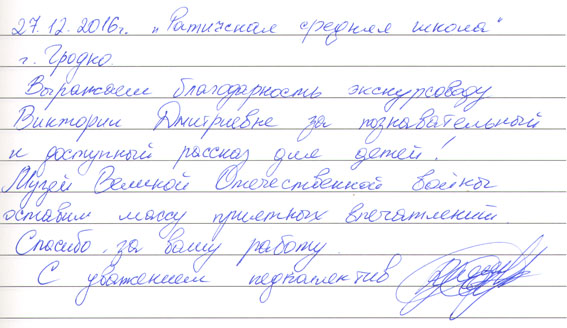 27.12.2016г. "Ратичская средняя школа"
г. Гродно.
Выражаем благодарность экскурсоводу
Виктории Дмитриевне за познавательный
и доступный рассказ для детей!
Музей Великой Отечественной войны
оставил массу приятных впечатлений.
Спасибо за вашу работу.
С уважением педколлектив